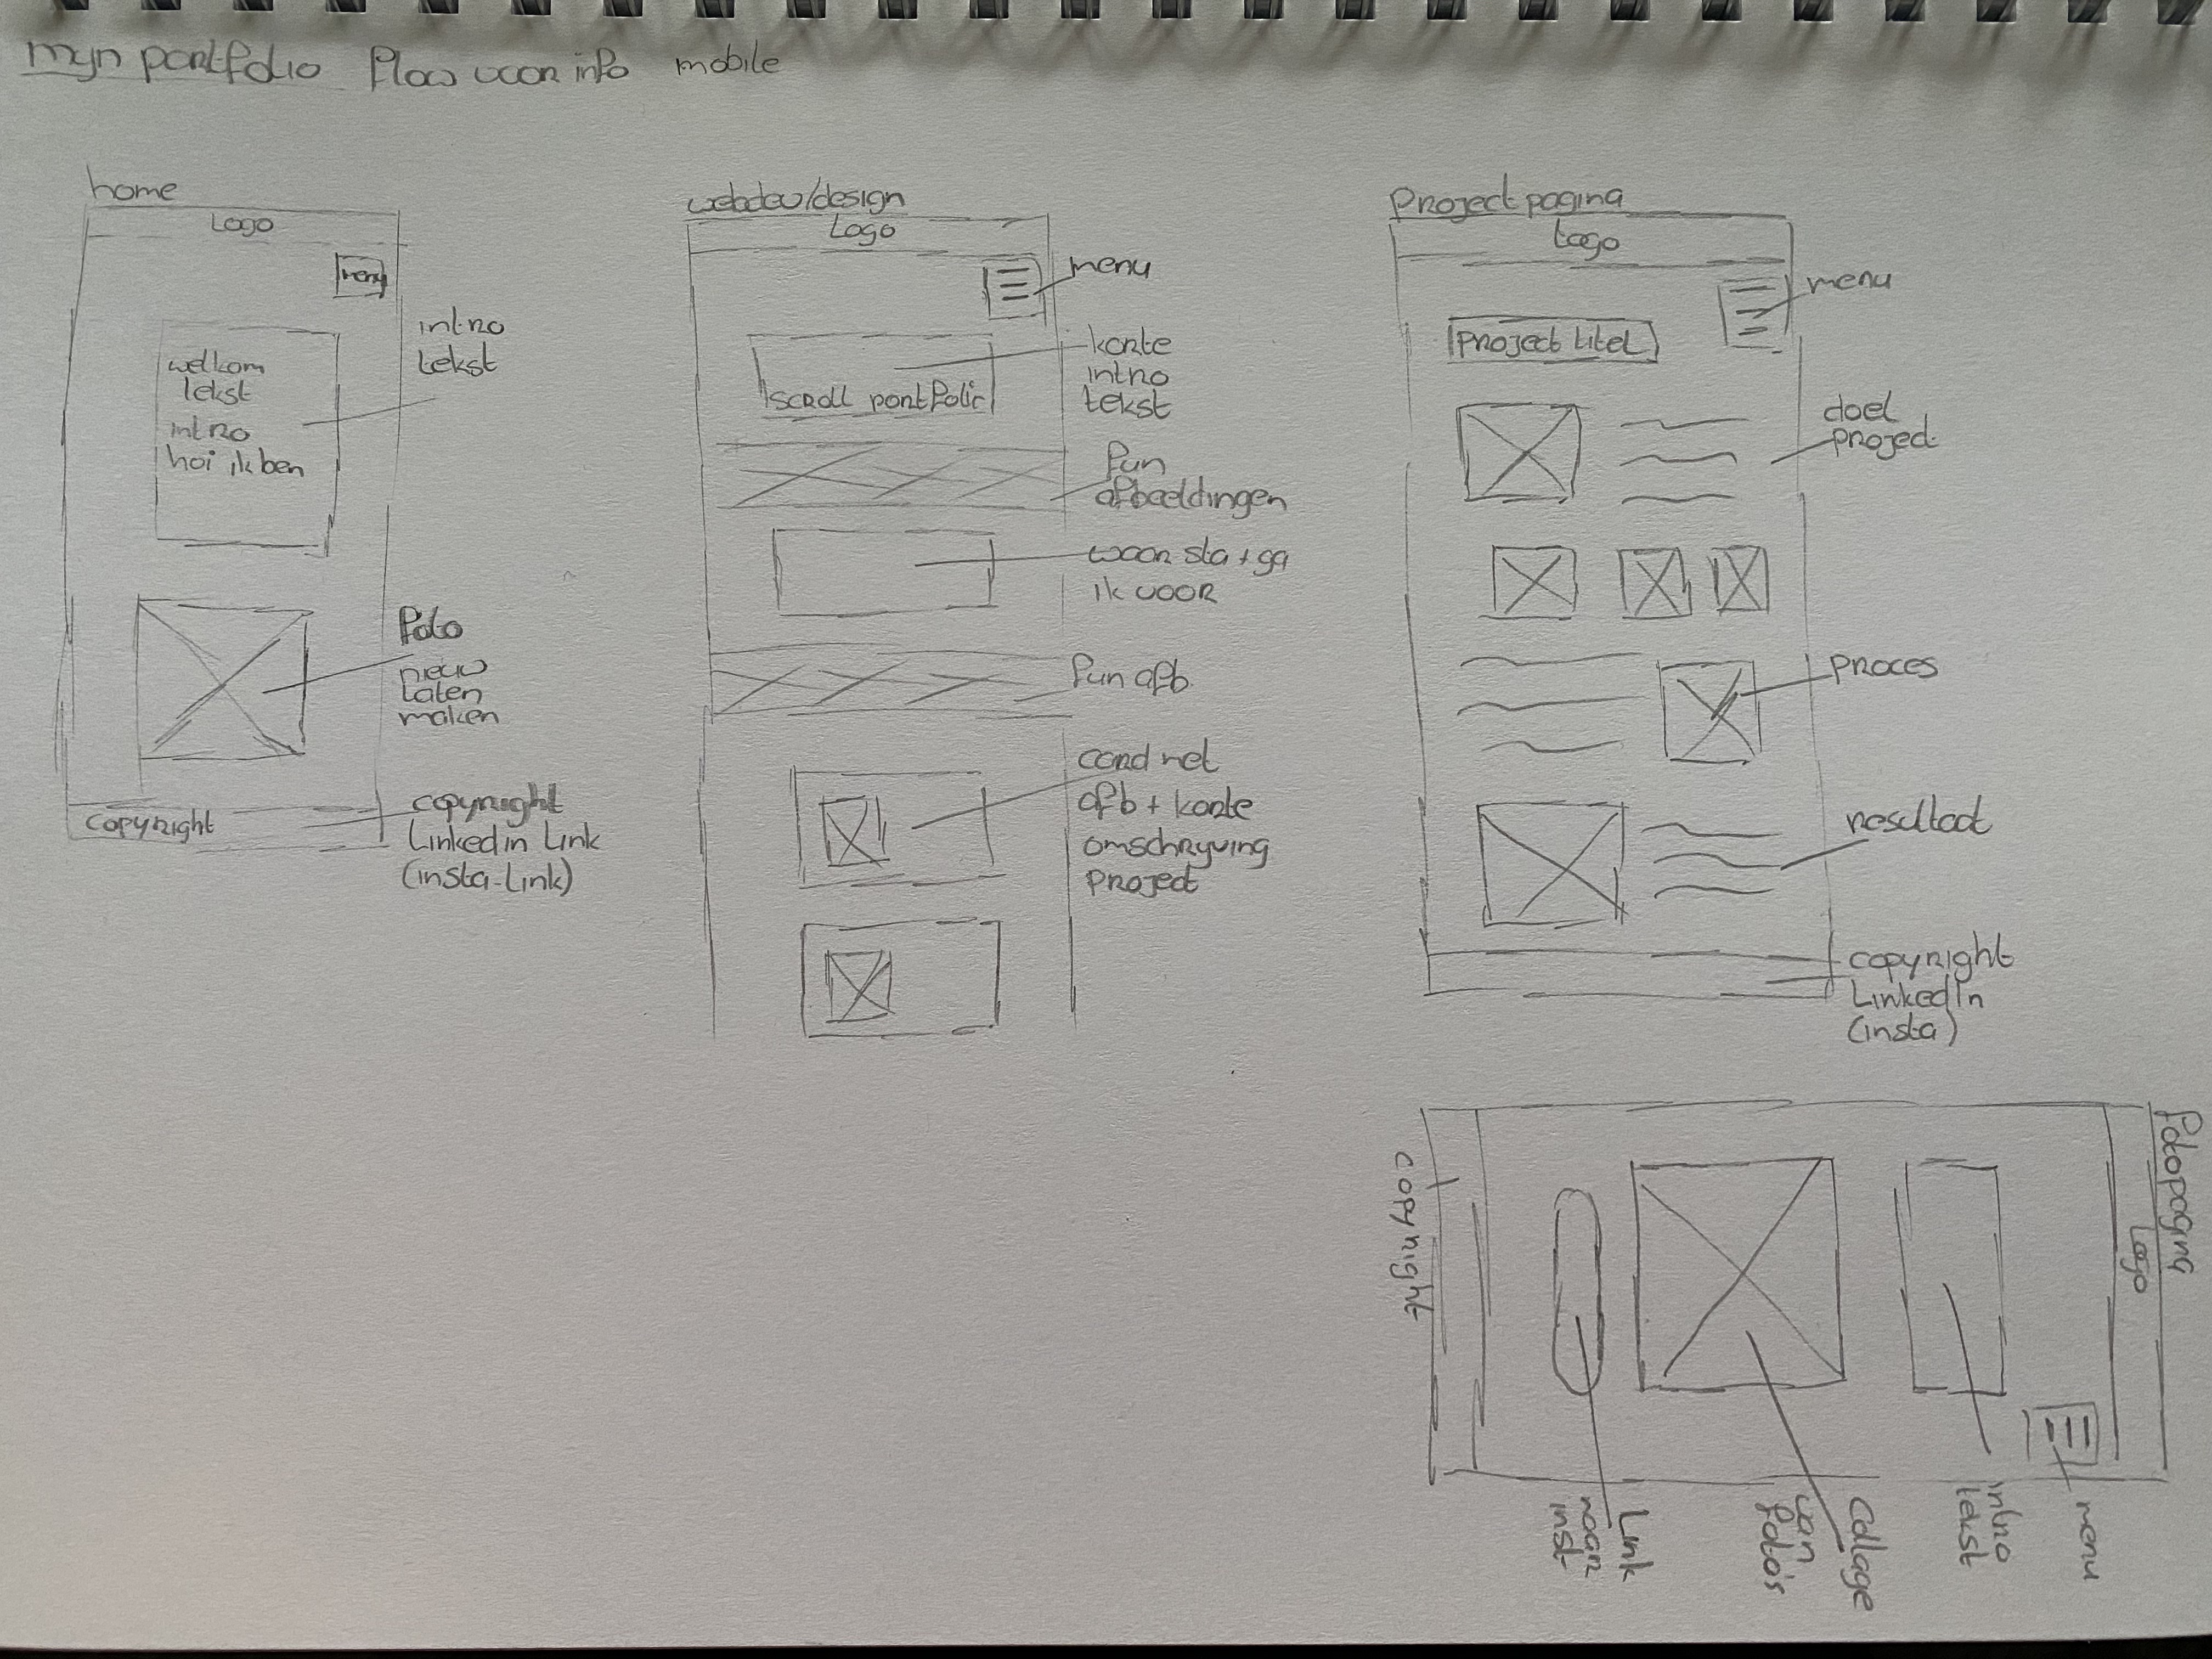 mijn portfolio flow voor info mobile
home
Logo
menu
welkom
tekst
intro
hoi ik ben
intro
tekst
foto
nieuw
laten
maken
copyright
copyright
Linkedin Link
(insta-Link)
webdev/design
Logo
menu
scroll portfolio
korte
intro
tekst
fun
afbeeldingen
waar sta + ga
ik voor
fun afb.
card met
afb + korte
omschrijving
project
Project pagina
Logo
menu
Project titel
doel
project
proces
resultaat
copyright
LinkedIn
(insta)
Fotopagina
Logo
menu
intro
tekst
Collage
van
foto's
Link
naar
inst
copyright